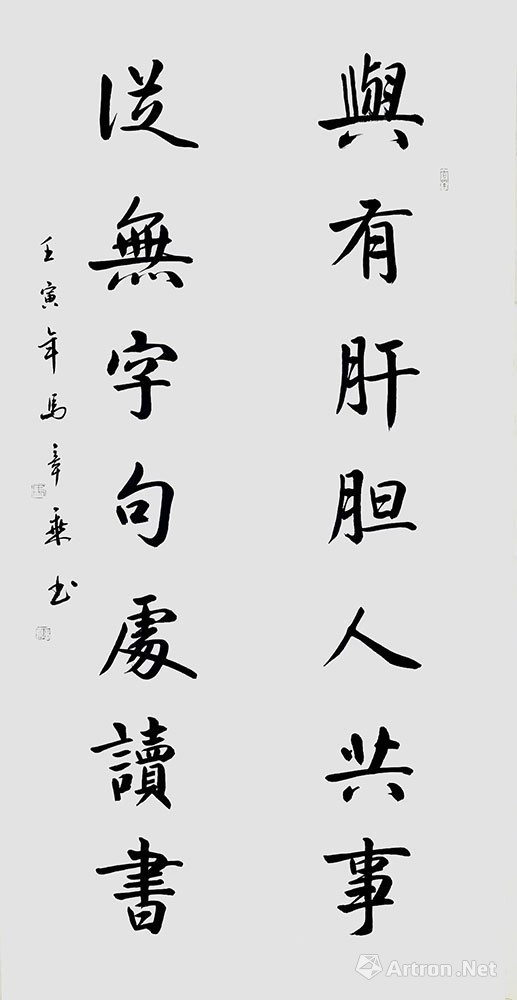 與有肝胆人共事
從無字句處讀書
壬寅年馬章乘书
Artron.Net